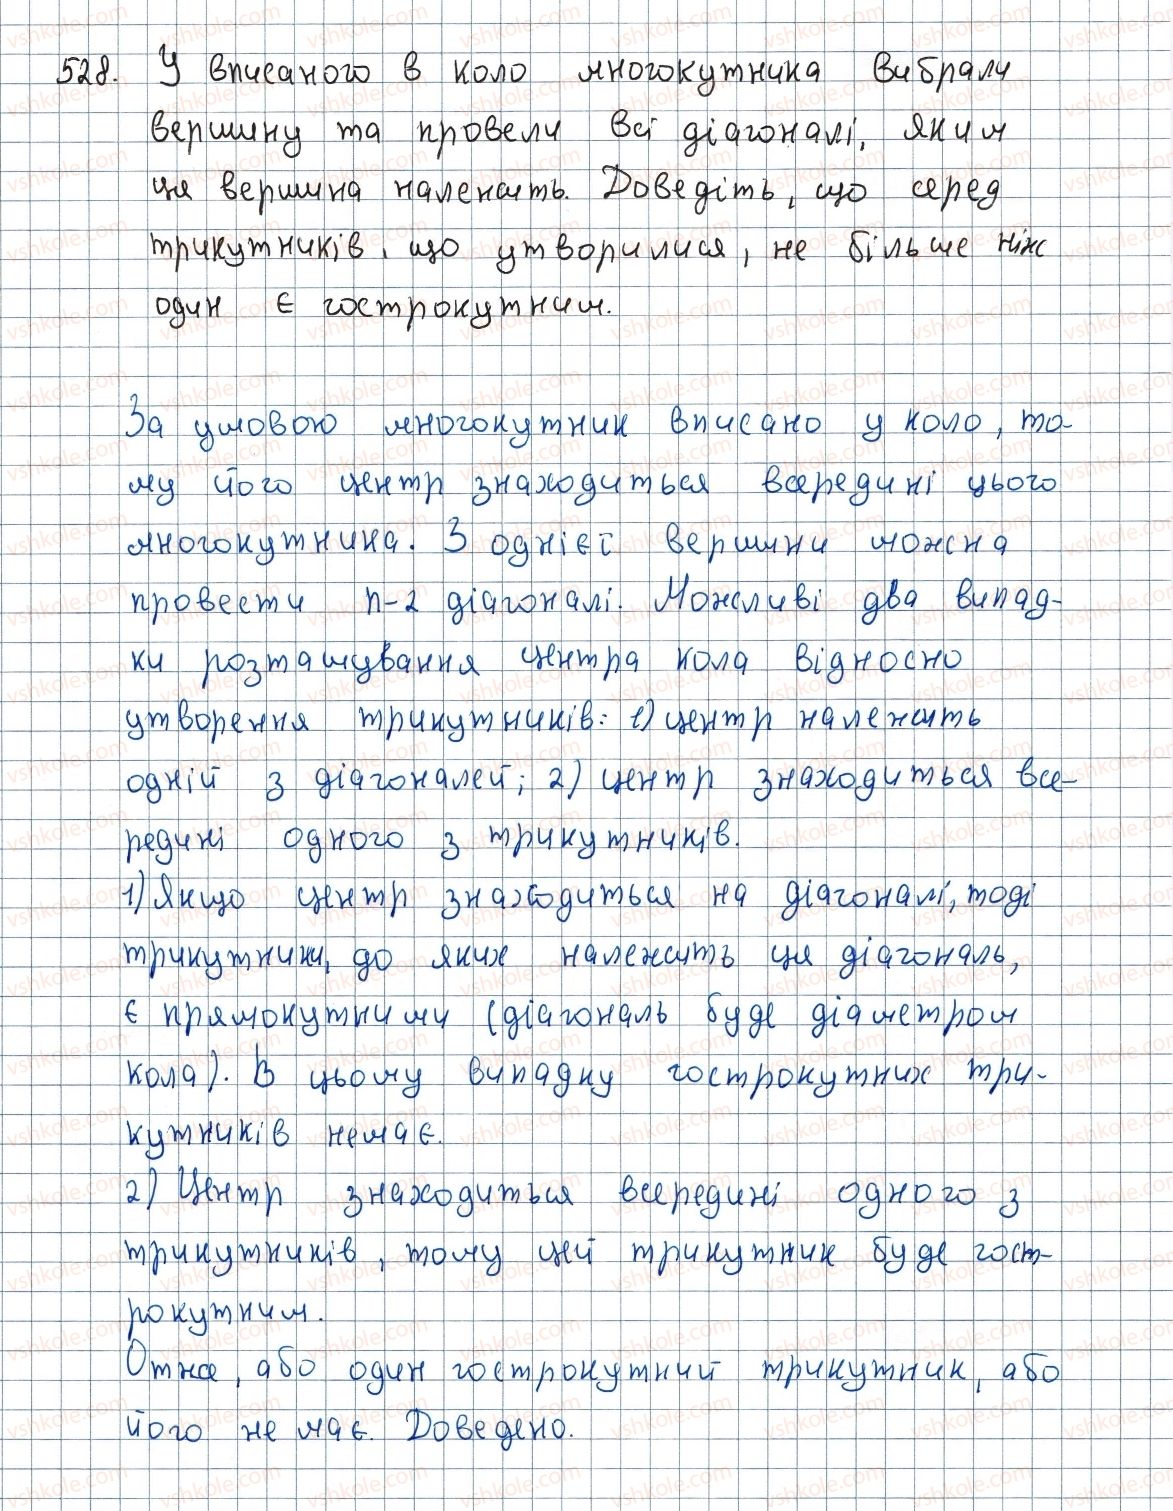 528. У вписаного в коло многокутника вибрали
вершину та провели всі діагоналі, яким
ця вершина належить. Доведіть, що серед
трикутників, що утворилися, не більше ніж
один є гострокутним.
За умовою многокутник вписано у коло, то-
му його центр знаходиться всередині цього
многокутника. З однієї вершини можна
провести n-2 діагоналі. Можливі два випад-
ки розташування центра кола відносно
утворення трикутників: 1) центр належить
одній з діагоналей; 2) центр знаходиться все-
редині одного з трикутників.
1) Якщо центр знаходиться на діагоналі, тоді
трикутники, до яких належить ця діагональ,
є прямокутними (діагональ буде діаметром
кола). В цьому випадку гострокутних три-
кутників немає.
2) Центр знаходиться всередині одного з
трикутників, тому цей трикутник буде гост-
рокутним.
Отже, або один гострокутний трикутник, або
його не має. Доведено.